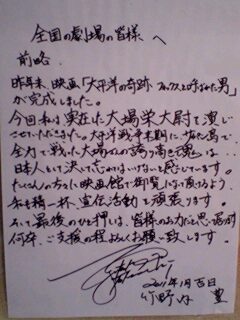 全国の劇場の皆様へ
前略
昨年末、映画「太平洋の奇跡 フォックスと呼ばれた男」
が完成しました。
今回私は実在した大場栄大尉を演じ
させていただきました。太平洋戦争末期に、サイパン島で
全力で戦った大場さんの誇り高き魂は…
日本人として決して忘れてはいけないと感じています。
たくさんの方々に映画館で御覧になって頂けるよう、
私も精一杯、宣伝活動を頑張ります。
そして最後のひと押しは、皆様のお力だと思い
何卒、ご支援の程よろしくお願い致します。
2011年1月吉日
竹野内 豊